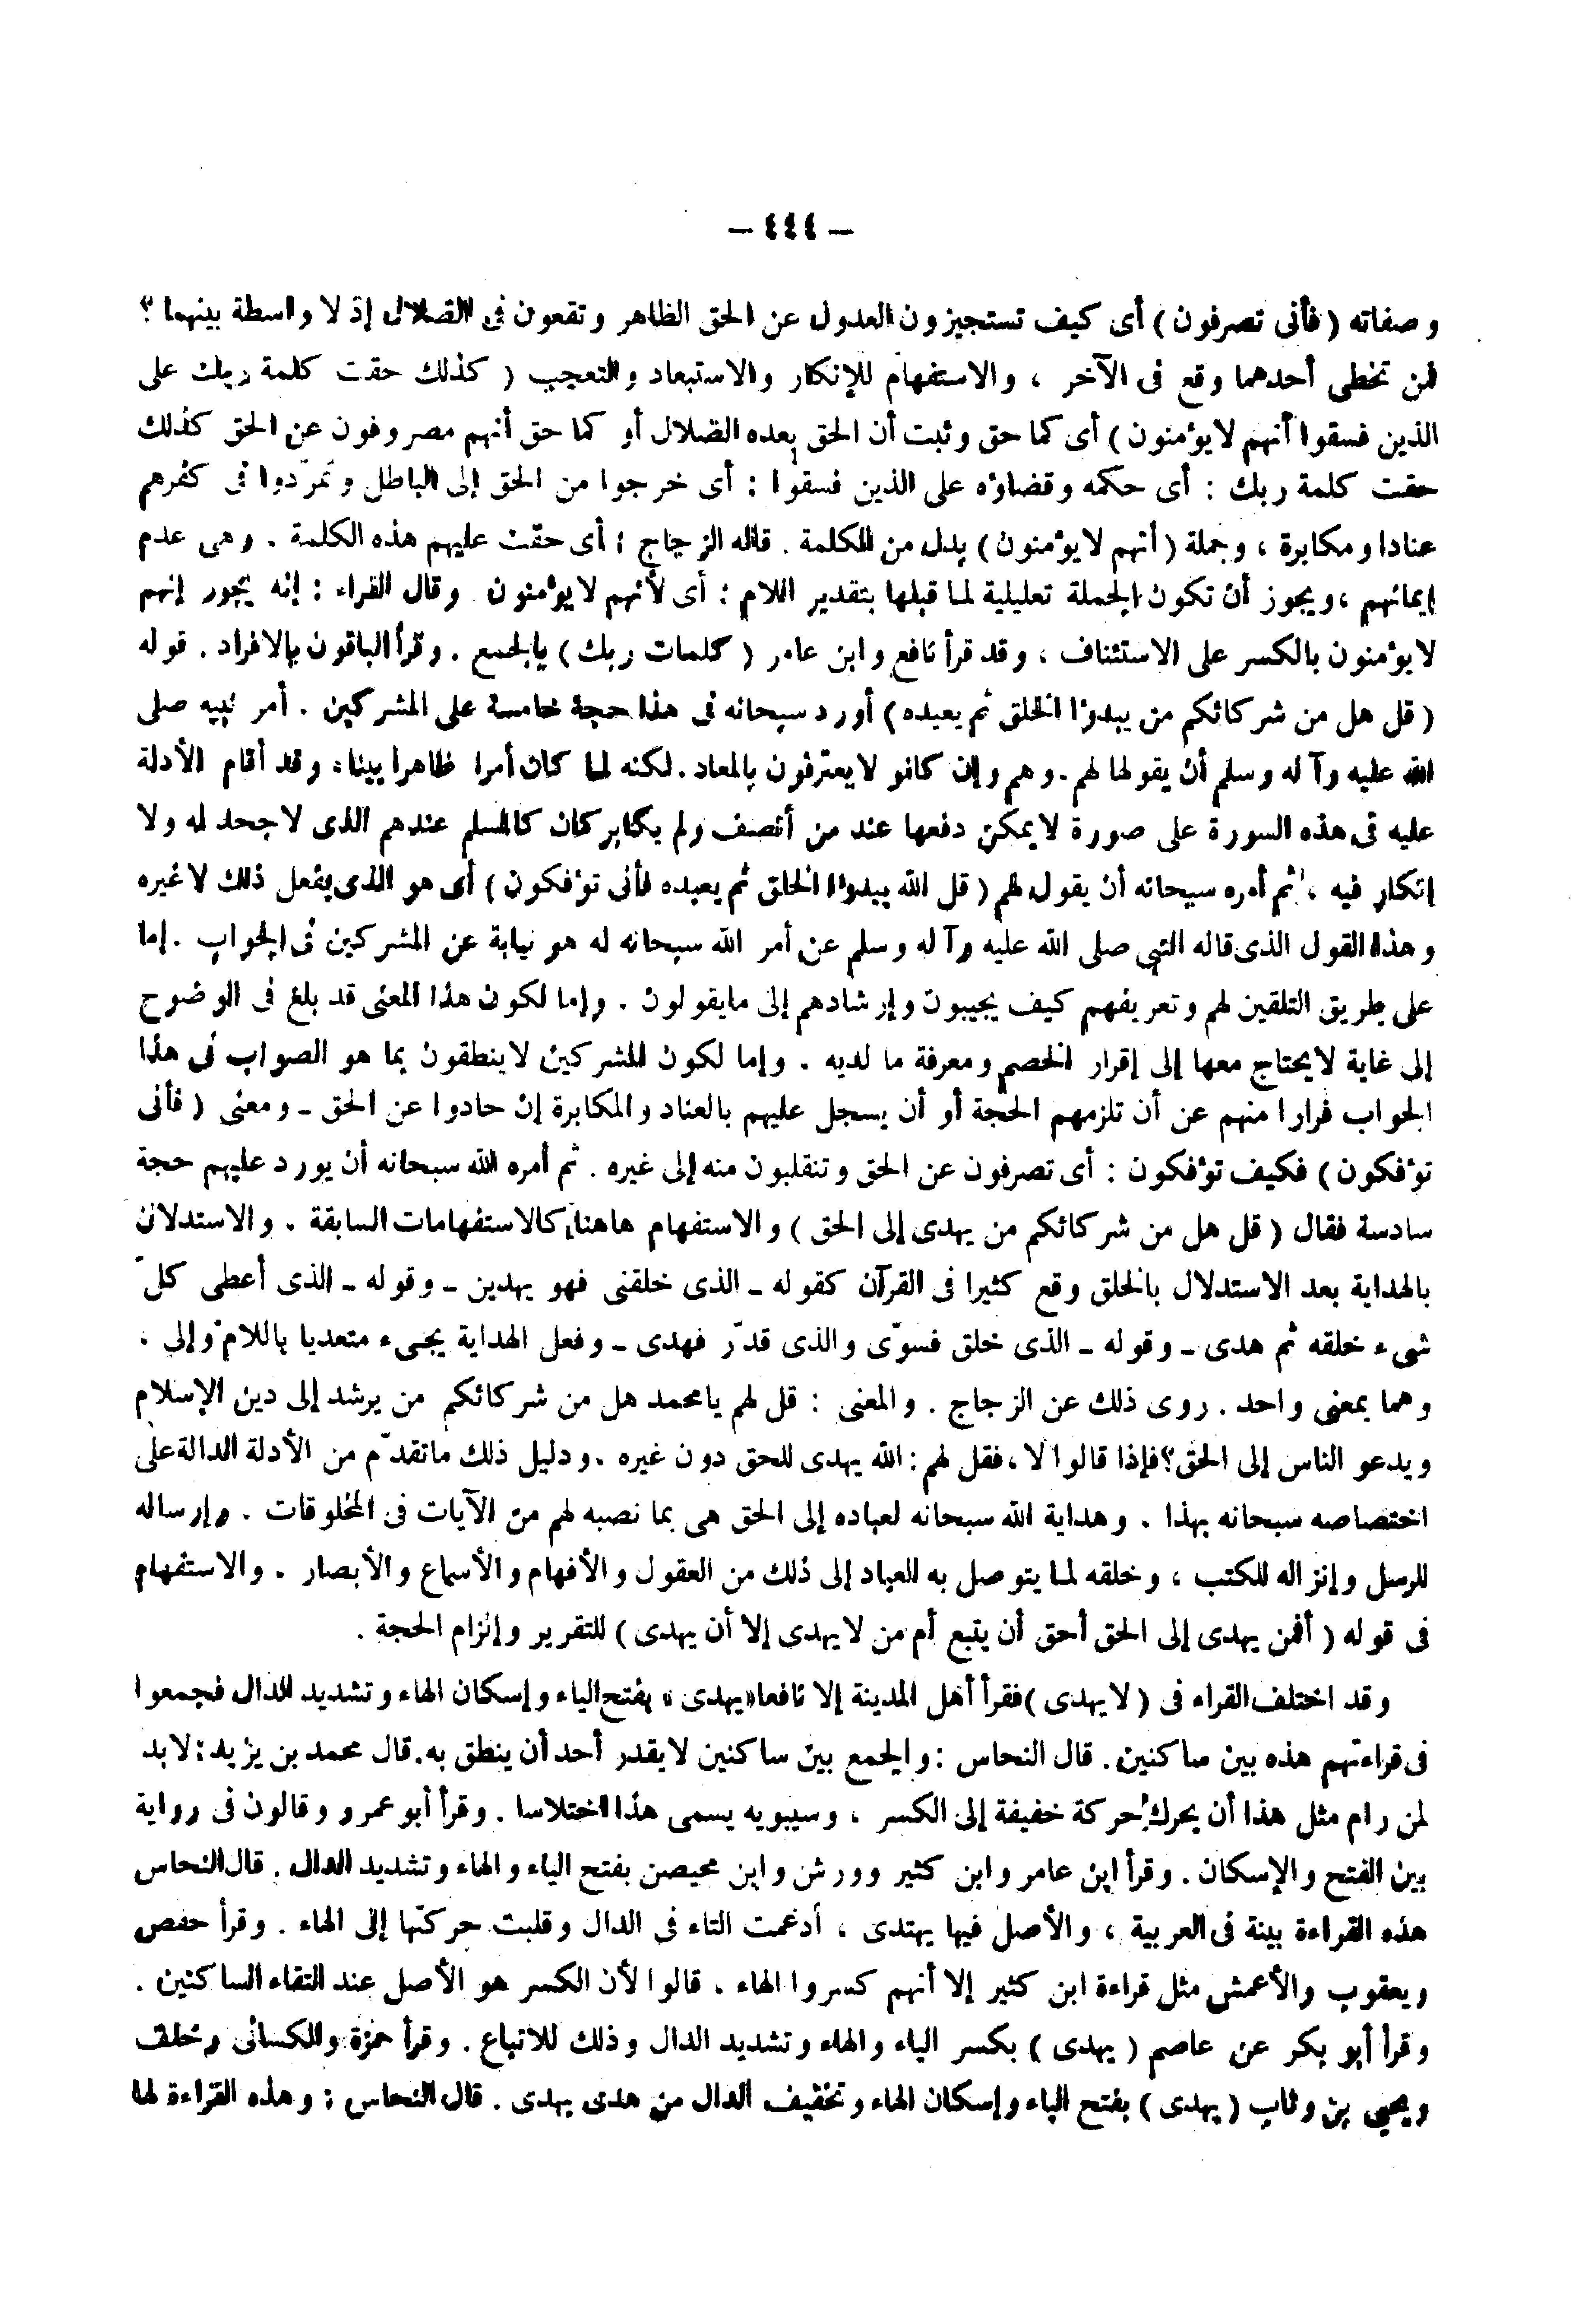 — ٤٤٤ —
وصفاته ( فأنى تصرفون ) أى كيف تستجيزون العدول عن الحق الظاهر وتقعون فى الضلال إذ لا واسطة بينهما ؟
فمن تخطى أحدهما وقع فى الآخر ، والاستفهام للإنكار والاستبعاد والتعجب ( كذلك حقت كلمة ربك على
الذين فسقوا أنهم لا يؤمنون ) أى كما حق وثبت أن الحق بعده الضلال أو كما حق أنهم مصروفون عن الحق كذلك
حقت كلمة ربك : أى حكمه وقضاؤه على الذين فسقوا : أى خرجوا من الحق إلى الباطل وتمرّدوا فى كفرهم
عنادا ومكابرة ، وجملة ( أنهم لا يؤمنون ) بدل من الكلمة . قاله الزجاج : أى حقت عليهم هذه الكلمة . وهى عدم
إيمانهم ، ويجوز أن تكون الجملة تعليلية لما قبلها بتقدير اللام : أى لأنهم لا يؤمنون وقال الفراء : إنه يجوز إنهم
لا يؤمنون بالكسر على الاستئناف ، وقد قرأ نافع وابن عامر ( كلمات ربك ) بالجمع . وقرأ الباقون بالافراد . قوله
( قل هل من شركائكم من يبدؤا الخلق ثم يعيده ) أورد سبحانه فى هذا حجة خامسة على المشركين . أمر نبيه صلى
الله عليه وآله وسلم أن يقولها لهم . وهم وإن كانو لا يعترفون بالمعاد . لكنه لما كان أمرا ظاهرا بينا ، وقد أقام الأدلة
عليه فى هذه السورة على صورة لا يمكن دفعها عند من أنصف ولم يكابر كان كالمسلم عندهم الذى لا جحد له ولا
إنكار فيه ، ثم أمره سبحانه أن يقول لهم ( قل الله يبدؤا الخلق ثم يعيده فأنى تؤفكون ) أى هو الذى يفعل ذلك لا غيره
وهذا القول الذى قاله النبى صلى الله عليه وآله وسلم عن أمر الله سبحانه له هو نيابة عن المشركين فى الجواب . إما
على طريق التلقين لهم وتعريفهم كيف يجيبون وإرشادهم إلى ما يقولون . وإما لكون هذا المعنى قد بلغ فى الوضوح
إلى غاية لا يحتاج معها إلى إقرار الخصم ومعرفة ما لديه . وإما لكون المشركين لا ينطقون بما هو الصواب فى هذا
الجواب فرارا منهم عن أن تلزمهم الحجة أو أن يسجل عليهم بالعناد والمكابرة إن حادوا عن الحق ـ ومعنى ( فأنى
تؤفكون ) فكيف تؤفكون : أى تصرفون عن الحق وتنقلبون منه إلى غيره . ثم أمره الله سبحانه أن يورد عليهم حجة
سادسة فقال ( قل هل من شركائكم من يهدى إلى الحق ) والاستفهام هاهنا كالاستفهامات السابقة . والاستدلال
بالهداية بعد الاستدلال بالخلق وقع كثيرا فى القرآن كقوله ـ الذى خلقنى فهو يهدين ـ وقوله ـ الذى أعطى كلّ
شىء خلقه ثم هدى ـ وقوله ـ الذى خلق فسوّى والذى قدّر فهدى ـ وفعل الهداية يجىء متعديا باللام وإلى ،
وهما بمعنى واحد . روى ذلك عن الزجاج . والمعنى : قل لهم يا محمد هل من شركائكم من يرشد إلى دين الإسلام
ويدعو الناس إلى الحق ؟ فإذا قالوا لا ، فقل لهم : الله يهدى للحق دون غيره . ودليل ذلك ما تقدّم من الأدلة الدالة على
اختصاصه سبحانه بهذا . وهداية الله سبحانه لعباده إلى الحق هى بما نصبه لهم من الآيات فى المخلوقات . وإرساله
للرسل وإنزاله للكتب ، وخلقه لما يتوصل به العباد إلى ذلك من العقول والأفهام والأسماع والأبصار . والاستفهام
فى قوله ( أفمن يهدى إلى الحق أحق أن يتبع أم من لا يهدى إلا أن يهدى ) للتقرير وإلزام الحجة .
وقد اختلف القراء فى ( لا يهدى ) فقرأ أهل المدينة إلا نافعا « يهدى » بفتح الياء وإسكان الهاء وتشديد الدال فجمعوا
فى قراءتهم هذه بين ساكنين . قال النحاس : والجمع بين ساكنين لا يقدر أحد أن ينطق به . قال محمد بن يزيد : لا بد
لمن رام مثل هذا أن يحرك حركة خفيفة إلى الكسر ، وسيبويه يسمى هذا اختلاسا . وقرأ أبو عمرو وقالون فى رواية
بين الفتح والإسكان . وقرأ ابن عامر وابن كثير وورش وابن محيصن بفتح الياء والهاء وتشديد الدال . قال النحاس
هذه القراءة بينة فى العربية ، والأصل فيها يهتدى ، أدغمت التاء فى الدال وقلبت حركتها إلى الهاء . وقرأ حفص
ويعقوب والأعمش مثل قراءة ابن كثير إلا أنهم كسروا الهاء ، قالوا لأن الكسر هو الأصل عند التقاء الساكنين .
وقرأ أبو بكر عن عاصم ( يهدى ) بكسر الياء والهاء وتشديد الدال وذلك للاتباع . وقرأ حمزة والكسائى وخلف
ويحيى بن وثاب ( يهدى ) بفتح الياء وإسكان الهاء وتخفيف الدال من هدى يهدى . قال النحاس : وهذه القراءة لها